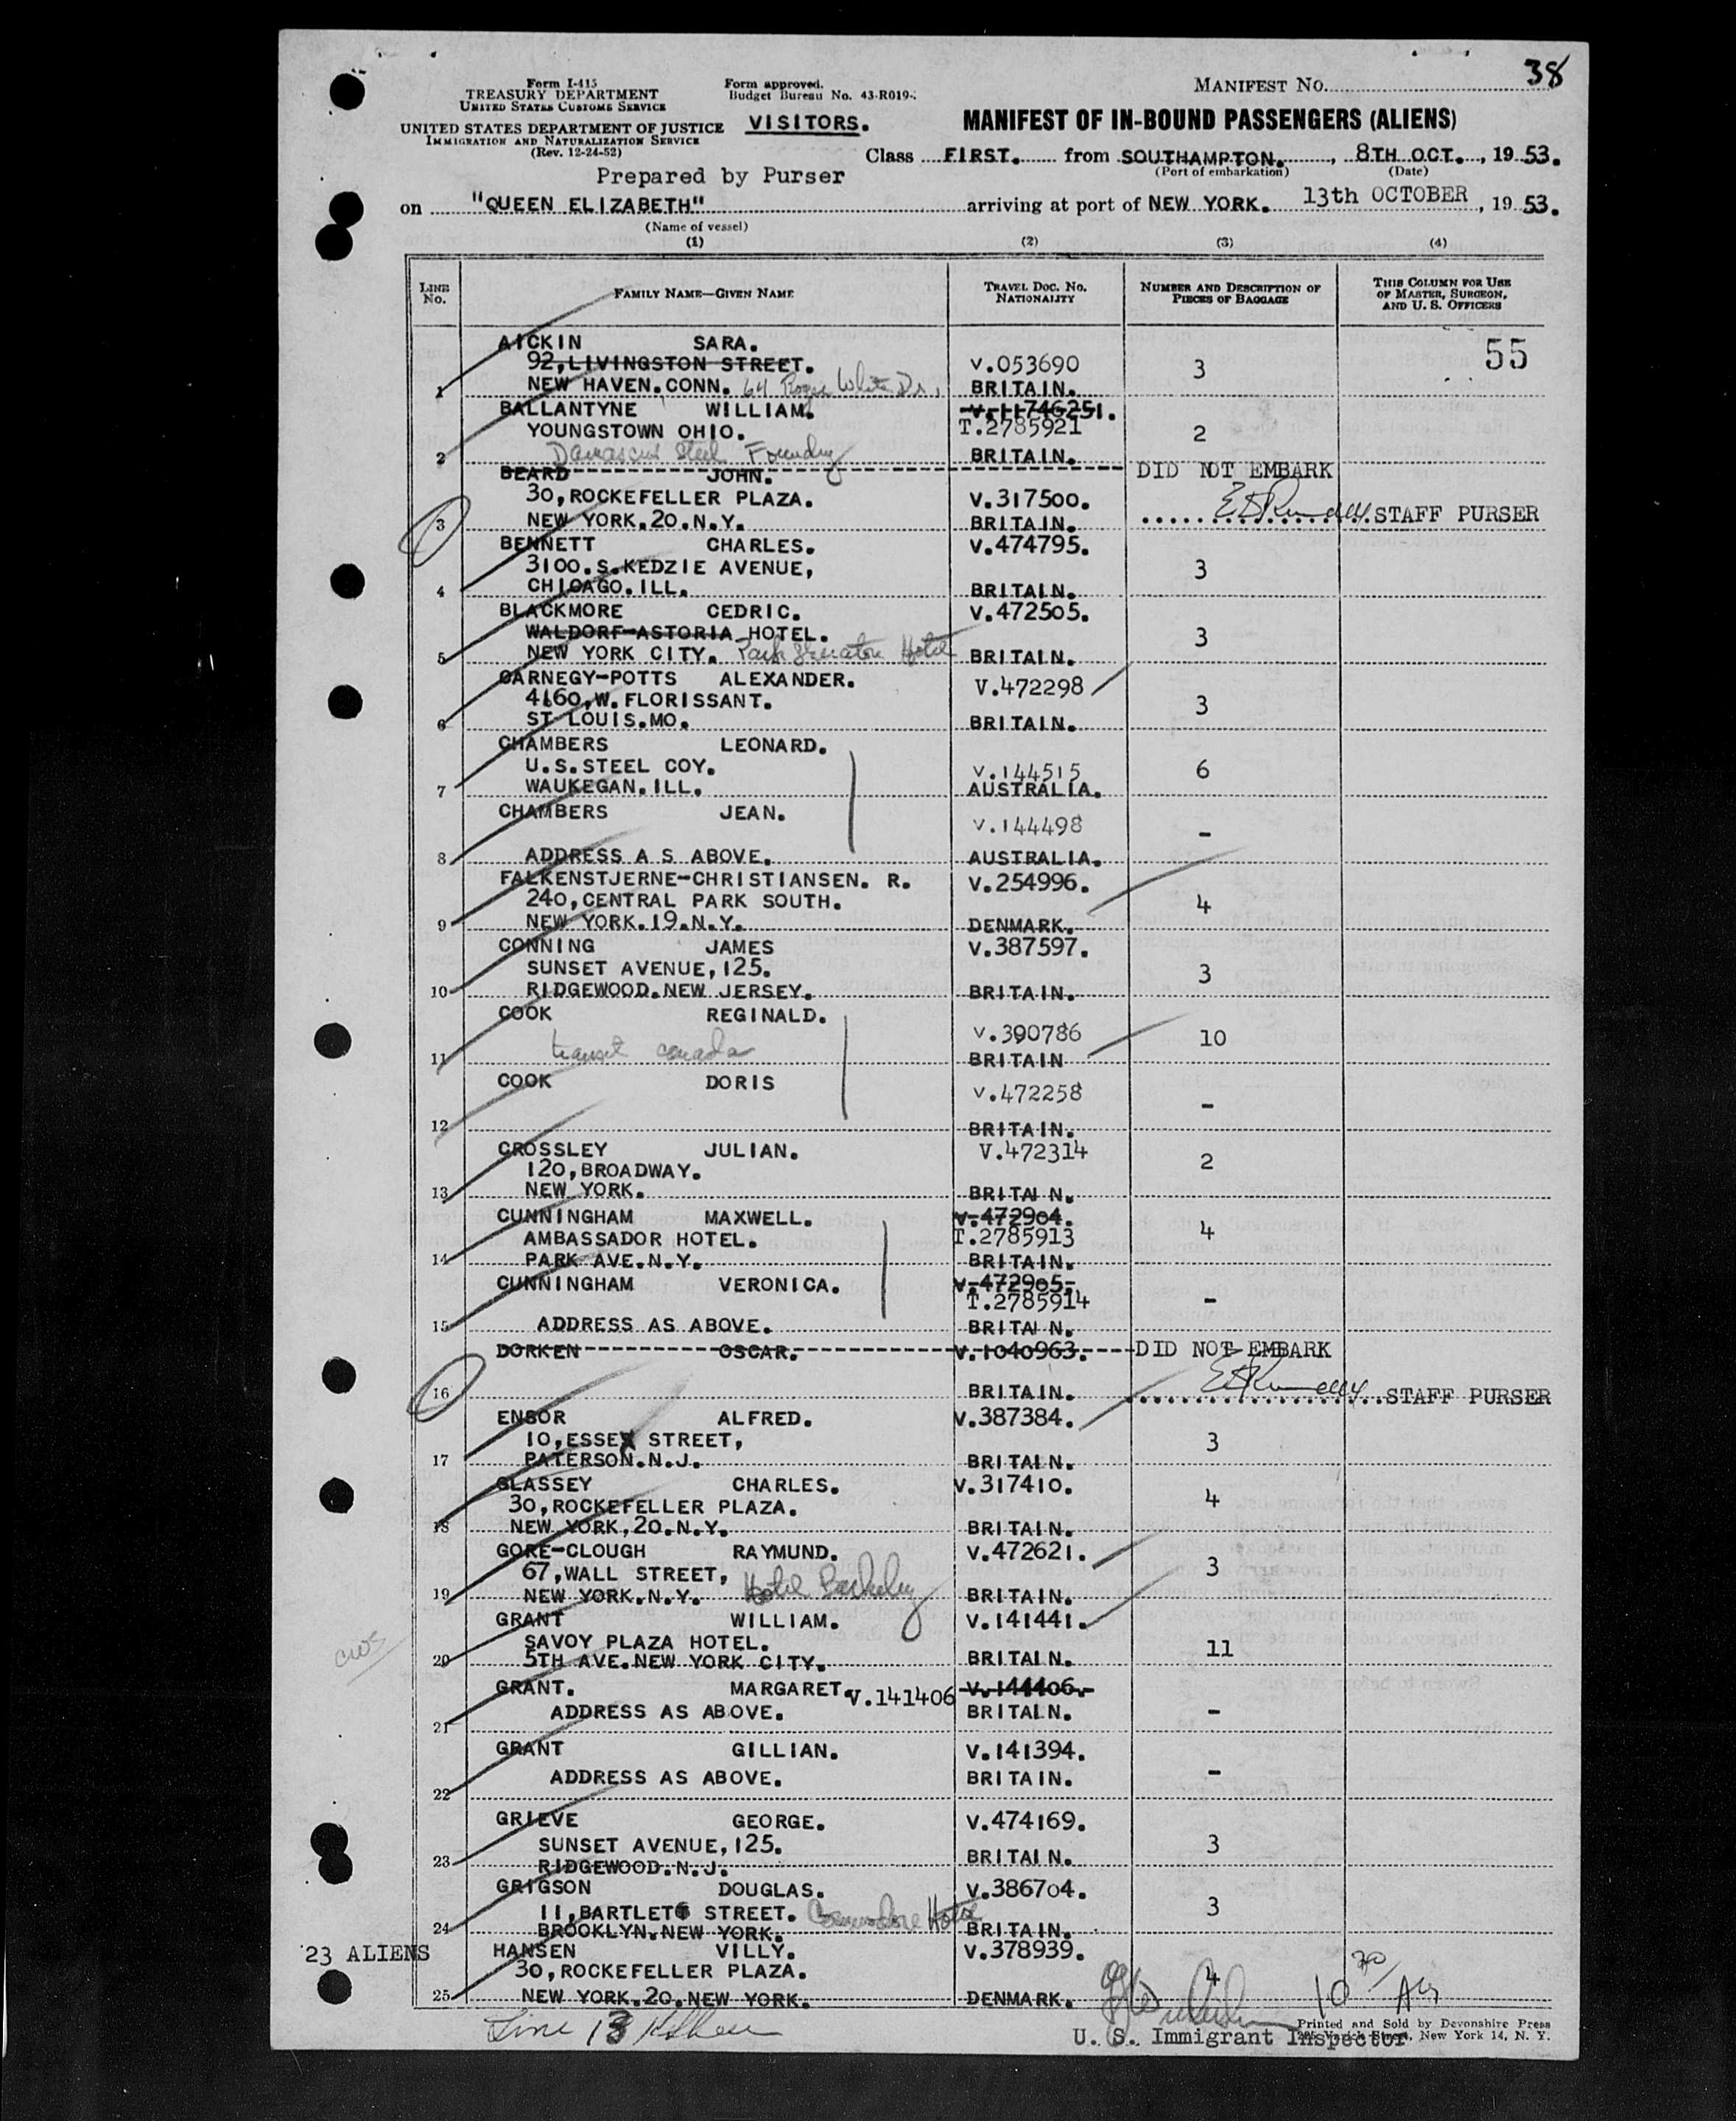 38
Form I-415
TREASURY DEPARTMENT
UNITED STATES CUSTOMS SERVICE
UNITED STATES DEPARTMENT OF JUSTICE
IMMIGRATION AND NATURALIZATION SERVICE
(Rev. 12-24-52)
Form approved.
Budget Bureau No. 43-R019-
VISITORS.
MANIFEST NO.
MANIFEST OF IN-BOUND PASSENGERS (ALIENS)
Class FIRST. from SOUTHAMPTON. , 8TH OCT. , 19 53.
(Port of embarkation) (Date)
Prepared by Purser
on "QUEEN ELIZABETH" arriving at port of NEW YORK. 13th OCTOBER , 19 53.
(Name of vessel)
(1) (2) (3) (4)
LINE NO. FAMILY NAME—GIVEN NAME TRAVEL DOC. NO. NATIONALITY NUMBER AND DESCRIPTION OF PIECES OF BAGGAGE THIS COLUMN FOR USE OF MASTER, SURGEON, AND U. S. OFFICERS
55
AICKIN SARA.
92, LIVINGSTON STREET. V.053690 3
1 NEW HAVEN. CONN. 64 Roger White Dr., BRITAIN.
BALLANTYNE WILLIAM. V.11746251.
YOUNGSTOWN OHIO. T.2785921 2
2 Damascus Steel Foundry BRITAIN.
BEARD JOHN. DID NOT EMBARK
30, ROCKEFELLER PLAZA. V.317500.
3 NEW YORK. 20. N.Y. BRITAIN. STAFF PURSER
BENNETT CHARLES. V.474795.
3100. S. KEDZIE AVENUE, 3
4 CHICAGO. ILL. BRITAIN.
BLACKMORE CEDRIC. V.472505.
WALDORF-ASTORIA HOTEL. 3
5 NEW YORK CITY. Park Sheraton Hotel BRITAIN.
CARNEGY-POTTS ALEXANDER. V.472298
4160, W. FLORISSANT. 3
6 ST LOUIS. MO. BRITAIN.
CHAMBERS LEONARD.
U.S. STEEL COY. V.144515 6
7 WAUKEGAN. ILL. AUSTRALIA.
CHAMBERS JEAN. V.144498 -
8 ADDRESS A S ABOVE. AUSTRALIA.
FALKENSTJERNE-CHRISTIANSEN. R. V.254996.
240, CENTRAL PARK SOUTH. 4
9 NEW YORK. 19. N.Y. DENMARK.
CONNING JAMES V.387597.
SUNSET AVENUE, 125. 3
10 RIDGEWOOD. NEW JERSEY. BRITAIN.
COOK REGINALD. V.390786 10
11 transit canada BRITAIN
COOK DORIS V.472258 -
12 BRITAIN.
CROSSLEY JULIAN. V.472314
120, BROADWAY. 2
13 NEW YORK. BRITAI N.
CUNNINGHAM MAXWELL. V.472904.
AMBASSADOR HOTEL. T.2785913 4
14 PARK AVE. N.Y. BRITAIN.
CUNNINGHAM VERONICA. V.472905.
T.2785914 -
15 ADDRESS AS ABOVE. BRITAI N.
DORKEN OSCAR. V.1040963. DID NOT EMBARK
16 BRITAIN. STAFF PURSER
ENSOR ALFRED. V.387384.
10, ESSEX STREET, 3
17 PATERSON. N.J. BRITAIN.
GLASSEY CHARLES. V.317410.
30, ROCKEFELLER PLAZA. 4
18 NEW YORK, 20. N.Y. BRITAIN.
GORE-CLOUGH RAYMUND. V.472621.
67, WALL STREET, 3
19 NEW YORK. N.Y. Hotel Barkeley BRITAIN.
GRANT WILLIAM. V.141441.
SAVOY PLAZA HOTEL. 11
20 5TH AVE. NEW YORK CITY. BRITAIN.
GRANT. MARGARET. V.141406 V.144406.
21 ADDRESS AS ABOVE. BRITAIN. -
GRANT GILLIAN. V.141394.
22 ADDRESS AS ABOVE. BRITAIN. -
GRIEVE GEORGE. V.474169.
SUNSET AVENUE, 125. 3
23 RIDGEWOOD. N.J. BRITAIN.
GRIGSON DOUGLAS. V.386704.
11, BARTLETT STREET. Commodore Hotel 3
24 BROOKLYN. NEW YORK. BRITAIN.
23 ALIENS
HANSEN VILLY. V.378939.
30, ROCKEFELLER PLAZA. 4
25 NEW YORK. 20. NEW YORK. DENMARK.
10 30/ AM
Line 13
U. S. Immigrant Inspector
Printed and Sold by Devonshire Press
Varick Street, New York 14, N. Y.